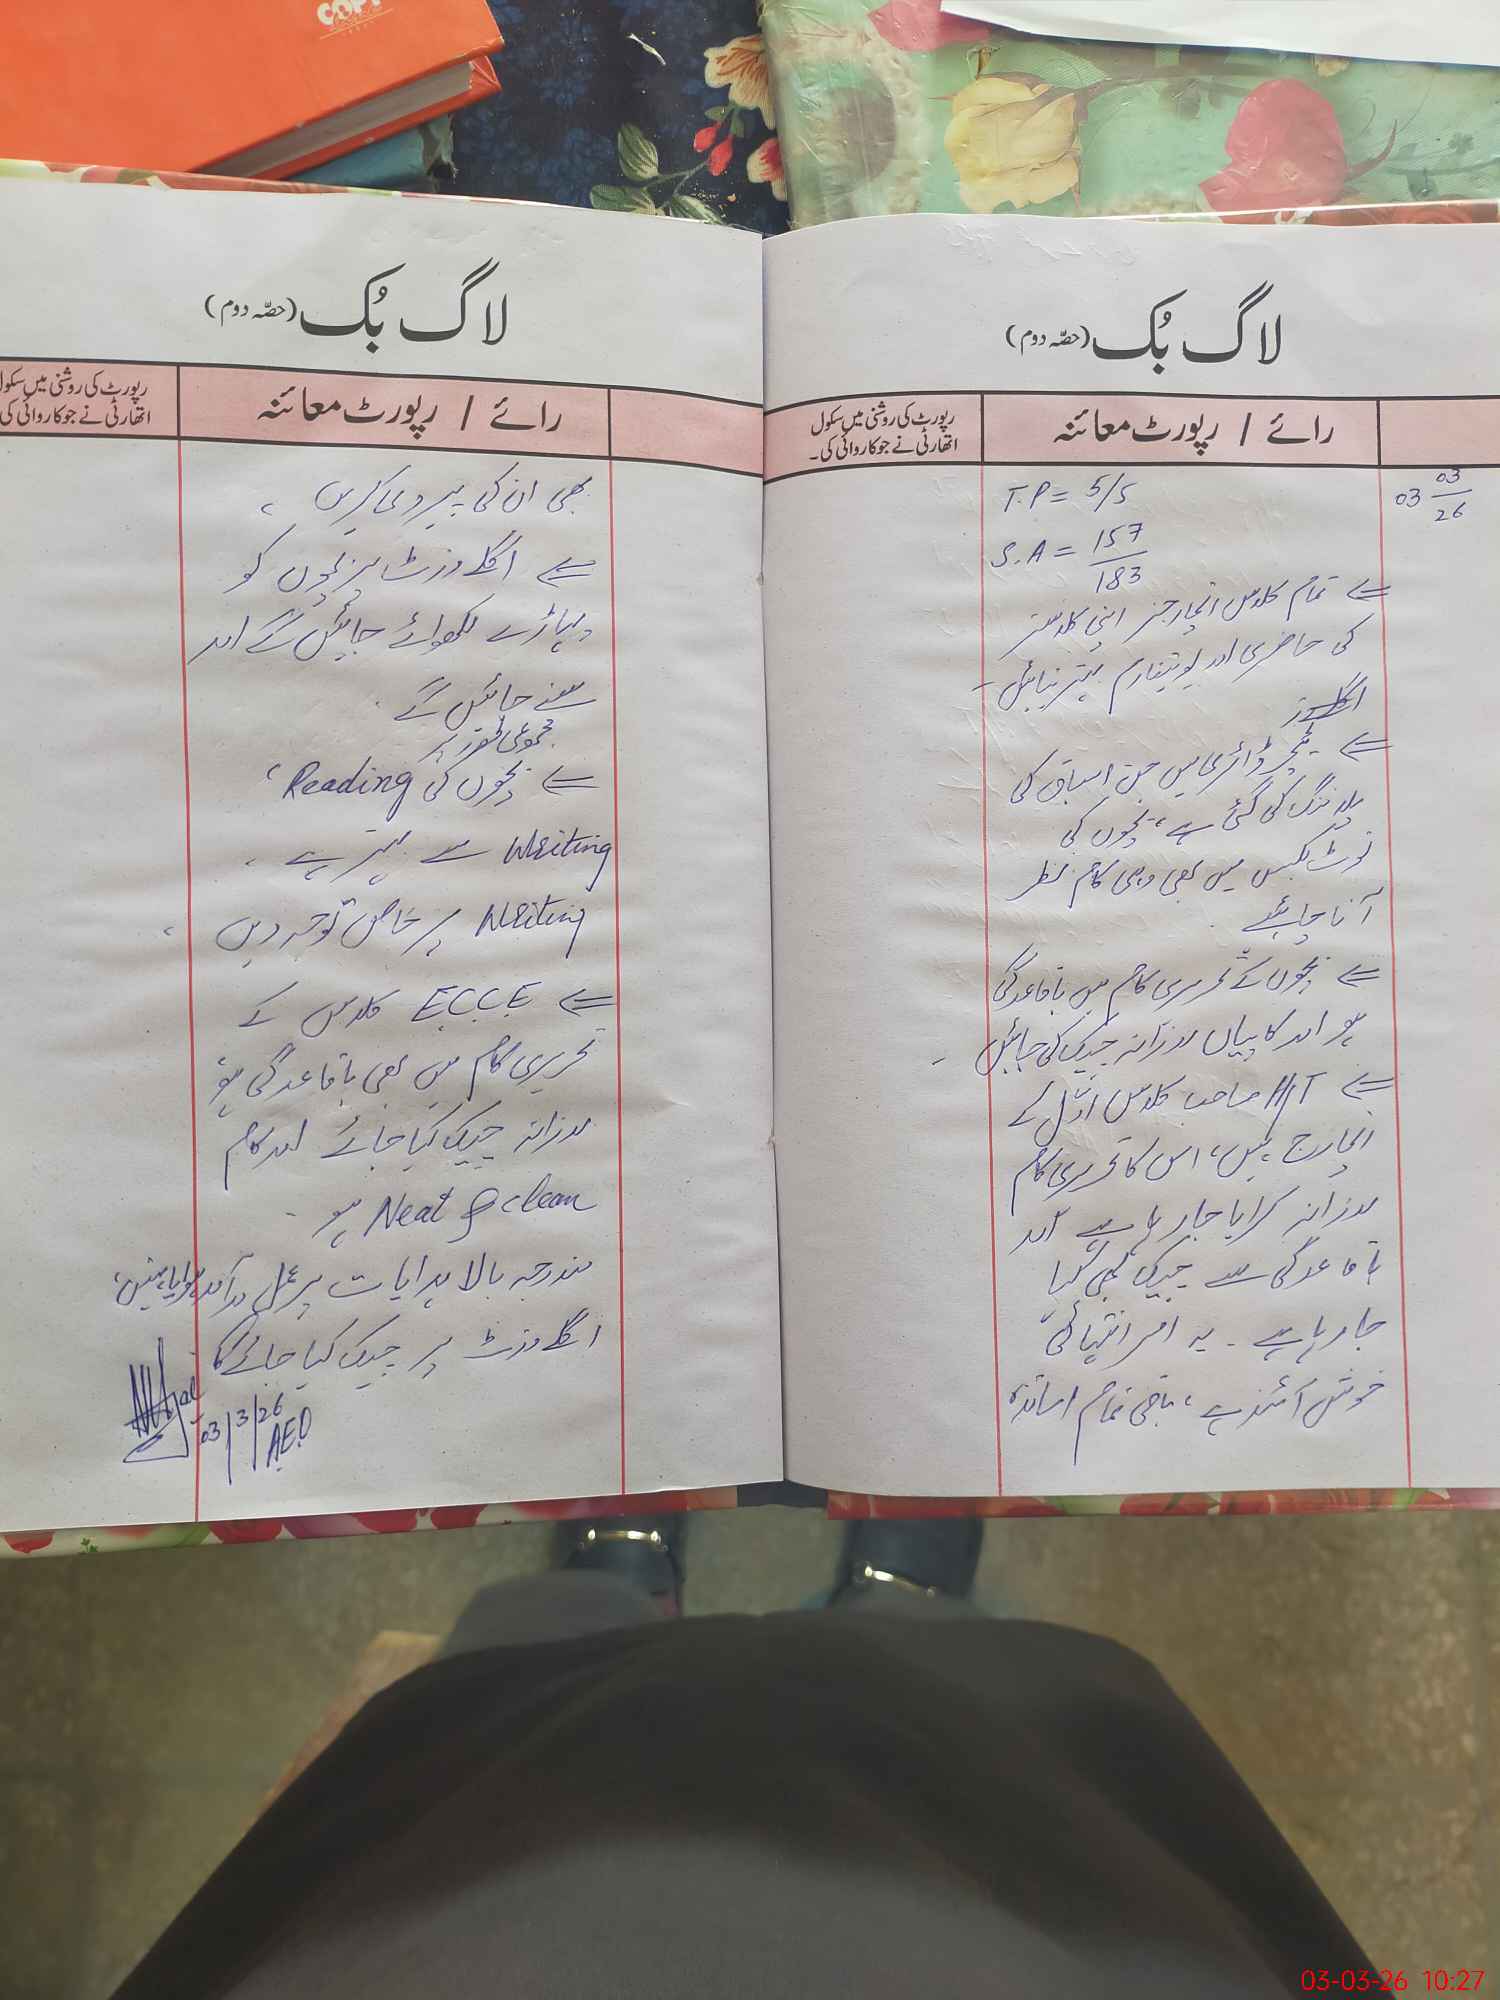 COPY
لاگ بُک (حصّہ دوم)
رپورٹ کی روشنی میں سکول
اتھارٹی نے جو کاروائی کی۔
رائے / رپورٹ معائنہ
03 03/26
T.P = 5/5
S.A = 157/183
⇐ تمام کلاس انچارجز اپنی کلاسز
کی حاضری اور یونیفارم بہتر بنائیں۔
اگلے
⇐ ٹیچر ڈائری میں جن اسباق کی
پلاننگ کی گئی ہے، بچوں کی
نوٹ بکس میں بھی وہی کام نظر
آنا چاہئے
⇐ بچوں کے تحریری کام میں باقاعدگی
ہو اور کاپیاں روزانہ چیک کی جائیں۔
⇐ H/T صاحب کلاس اوّل کے
انچارج ہیں، اس کا تحریری کام
روزانہ کرایا جا رہا ہے اور
باقاعدگی سے چیک بھی کیا
جا رہا ہے۔ یہ امر انتہائی
خوش آئند ہے، باقی تمام اساتذہ
لاگ بُک (حصّہ دوم)
رپورٹ کی روشنی میں سکول
اتھارٹی نے جو کاروائی کی
رائے / رپورٹ معائنہ
بھی ان کی پیروی کریں،
⇐ اگلے وزٹ پر بچوں کو
پہاڑے لکھوائے جائیں گے اور
سنے جائیں گے۔
مجموعی طور پر
⇐ بچوں کی Reading،
Writing سے بہتر ہے۔
Writing پر خاص توجہ دیں،
⇐ ECCE کلاس کے
تحریری کام میں بھی باقاعدگی ہو
روزانہ چیک کیا جائے اور کام
Neat & clean ہو۔
مندرجہ بالا ہدایات پر عمل درآمد ہوا یا نہیں،
اگلے وزٹ پر چیک کیا جائے گا
03/3/26
A.E.O
03-03-26 10:27